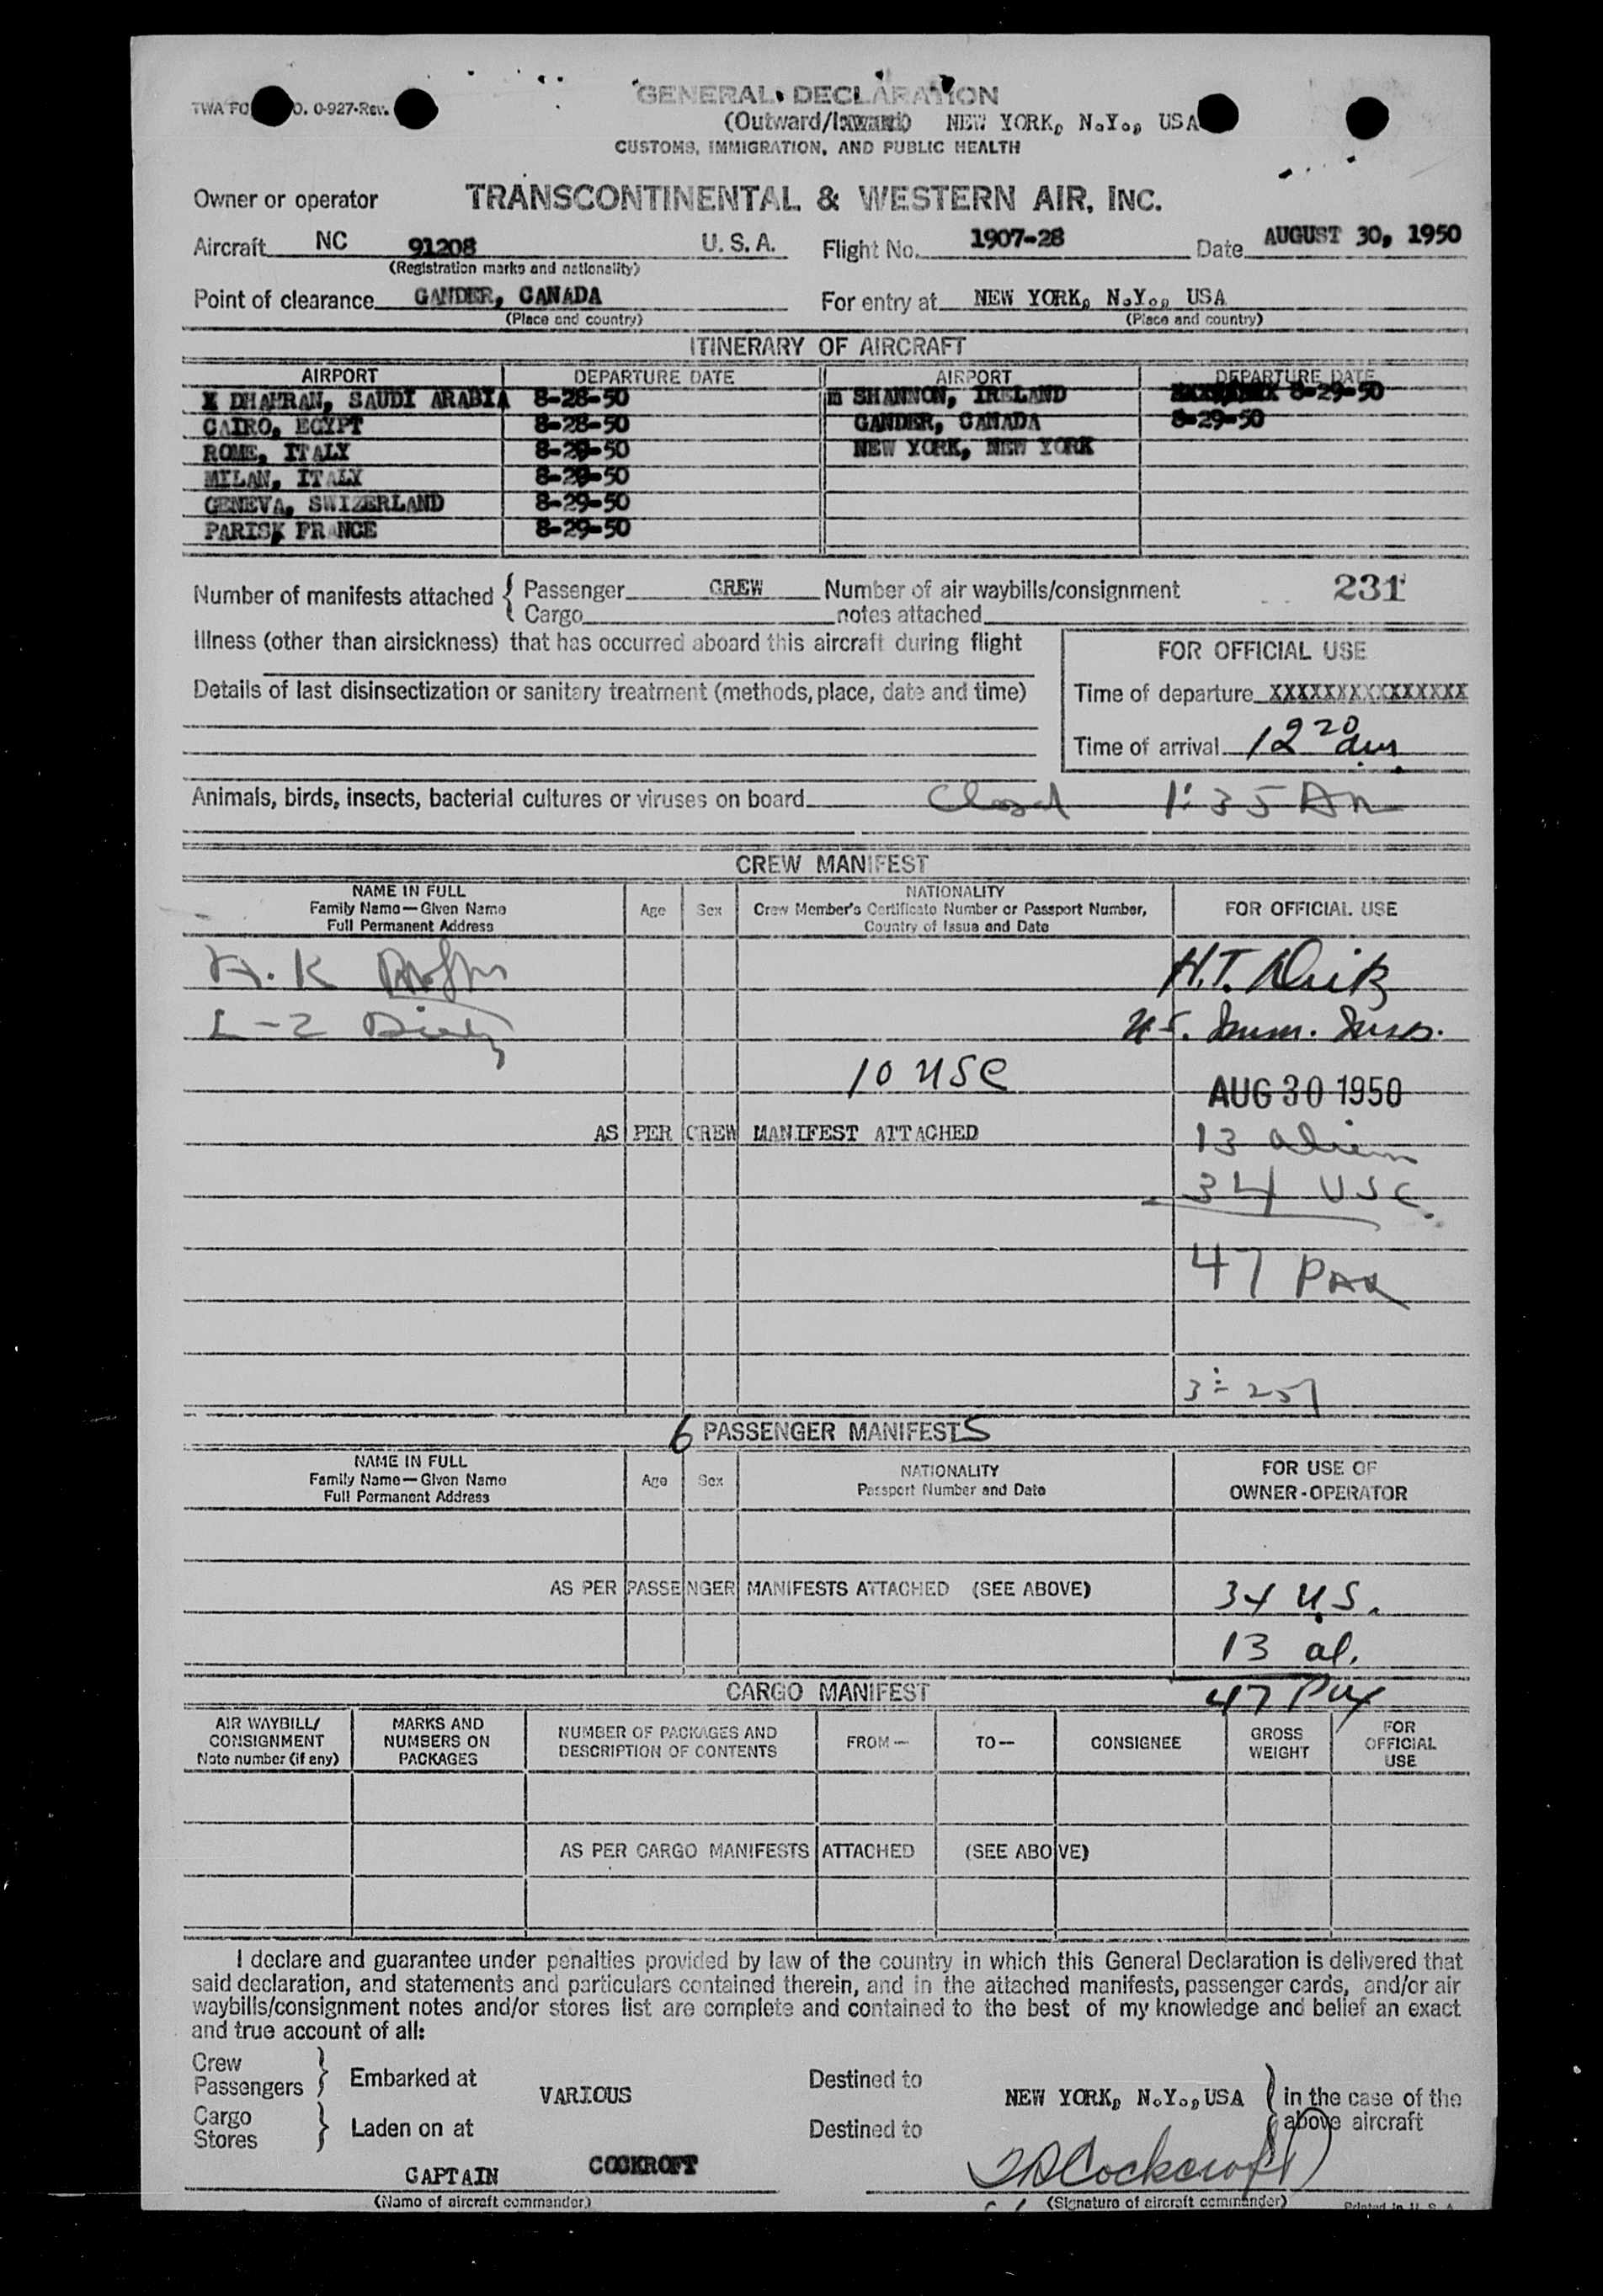 GENERAL DECLARATION
TWA FO O. 0-927-Rev.
(Outward/Inward) NEW YORK, N.Y., USA
CUSTOMS, IMMIGRATION, AND PUBLIC HEALTH
Owner or operator TRANSCONTINENTAL & WESTERN AIR, INC.
Aircraft NC 91208 U.S.A. Flight No. 1907-28 Date AUGUST 30, 1950
(Registration marks and nationality)
Point of clearance GANDER, CANADA For entry at NEW YORK, N.Y., USA
(Place and country) (Place and country)
ITINERARY OF AIRCRAFT
AIRPORT DEPARTURE DATE AIRPORT DEPARTURE DATE
X DHAHRAN, SAUDI ARABIA 8-28-50 m SHANNON, IRELAND 8-29-50
CAIRO, EGYPT 8-28-50 GANDER, CANADA 8-29-50
ROME, ITALY 8-29-50 NEW YORK, NEW YORK
MILAN, ITALY 8-29-50
GENEVA, SWIZERLAND 8-29-50
PARIS, FRANCE 8-29-50
Number of manifests attached { Passenger CREW Number of air waybills/consignment 231
Cargo notes attached
Illness (other than airsickness) that has occurred aboard this aircraft during flight
FOR OFFICIAL USE
Details of last disinsectization or sanitary treatment (methods, place, date and time)
Time of departure XXXXXXXXXXXXXXX
Time of arrival 12 20 am
Animals, birds, insects, bacterial cultures or viruses on board Closed 1:35 AM
CREW MANIFEST
NAME IN FULL
Family Name—Given Name
Full Permanent Address
Age Sex
NATIONALITY
Crew Member's Certificate Number or Passport Number,
Country of Issue and Date
FOR OFFICIAL USE
H.T.
U.S. Imm. Insp.
10 USC
AUG 30 1950
AS PER CREW MANIFEST ATTACHED 13 aliens
34 USC
47 PAX
6 PASSENGER MANIFESTS
NAME IN FULL
Family Name—Given Name
Full Permanent Address
Age Sex
NATIONALITY
Passport Number and Date
FOR USE OF
OWNER-OPERATOR
AS PER PASSENGER MANIFESTS ATTACHED (SEE ABOVE) 34 U.S.
13 al.
47 Pax
CARGO MANIFEST
AIR WAYBILL/
CONSIGNMENT
Note number (if any)
MARKS AND
NUMBERS ON
PACKAGES
NUMBER OF PACKAGES AND
DESCRIPTION OF CONTENTS
FROM—
TO—
CONSIGNEE
GROSS
WEIGHT
FOR
OFFICIAL
USE
AS PER CARGO MANIFESTS ATTACHED (SEE ABOVE)
I declare and guarantee under penalties provided by law of the country in which this General Declaration is delivered that
said declaration, and statements and particulars contained therein, and in the attached manifests, passenger cards, and/or air
waybills/consignment notes and/or stores list are complete and contained to the best of my knowledge and belief an exact
and true account of all:
Crew
Passengers } Embarked at VARIOUS Destined to NEW YORK, N.Y., USA } in the case of the
Cargo
Stores } Laden on at Destined to above aircraft
CAPTAIN COCKROFT Cockcroft
(Name of aircraft commander) (Signature of aircraft commander) Printed in U. S. A.